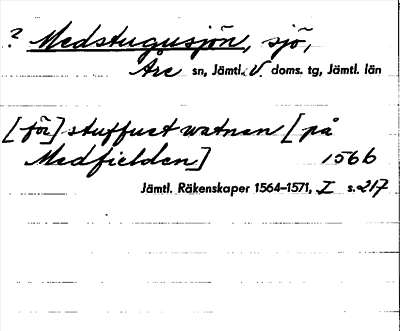 ? Medstugusjön, sjö,
Åre sn, Jämtl. V doms. tg, Jämtl. län
[för] stuffuet watnen [på
Medfielden] 1566
Jämtl. Räkenskaper 1564–1571, I s. 217